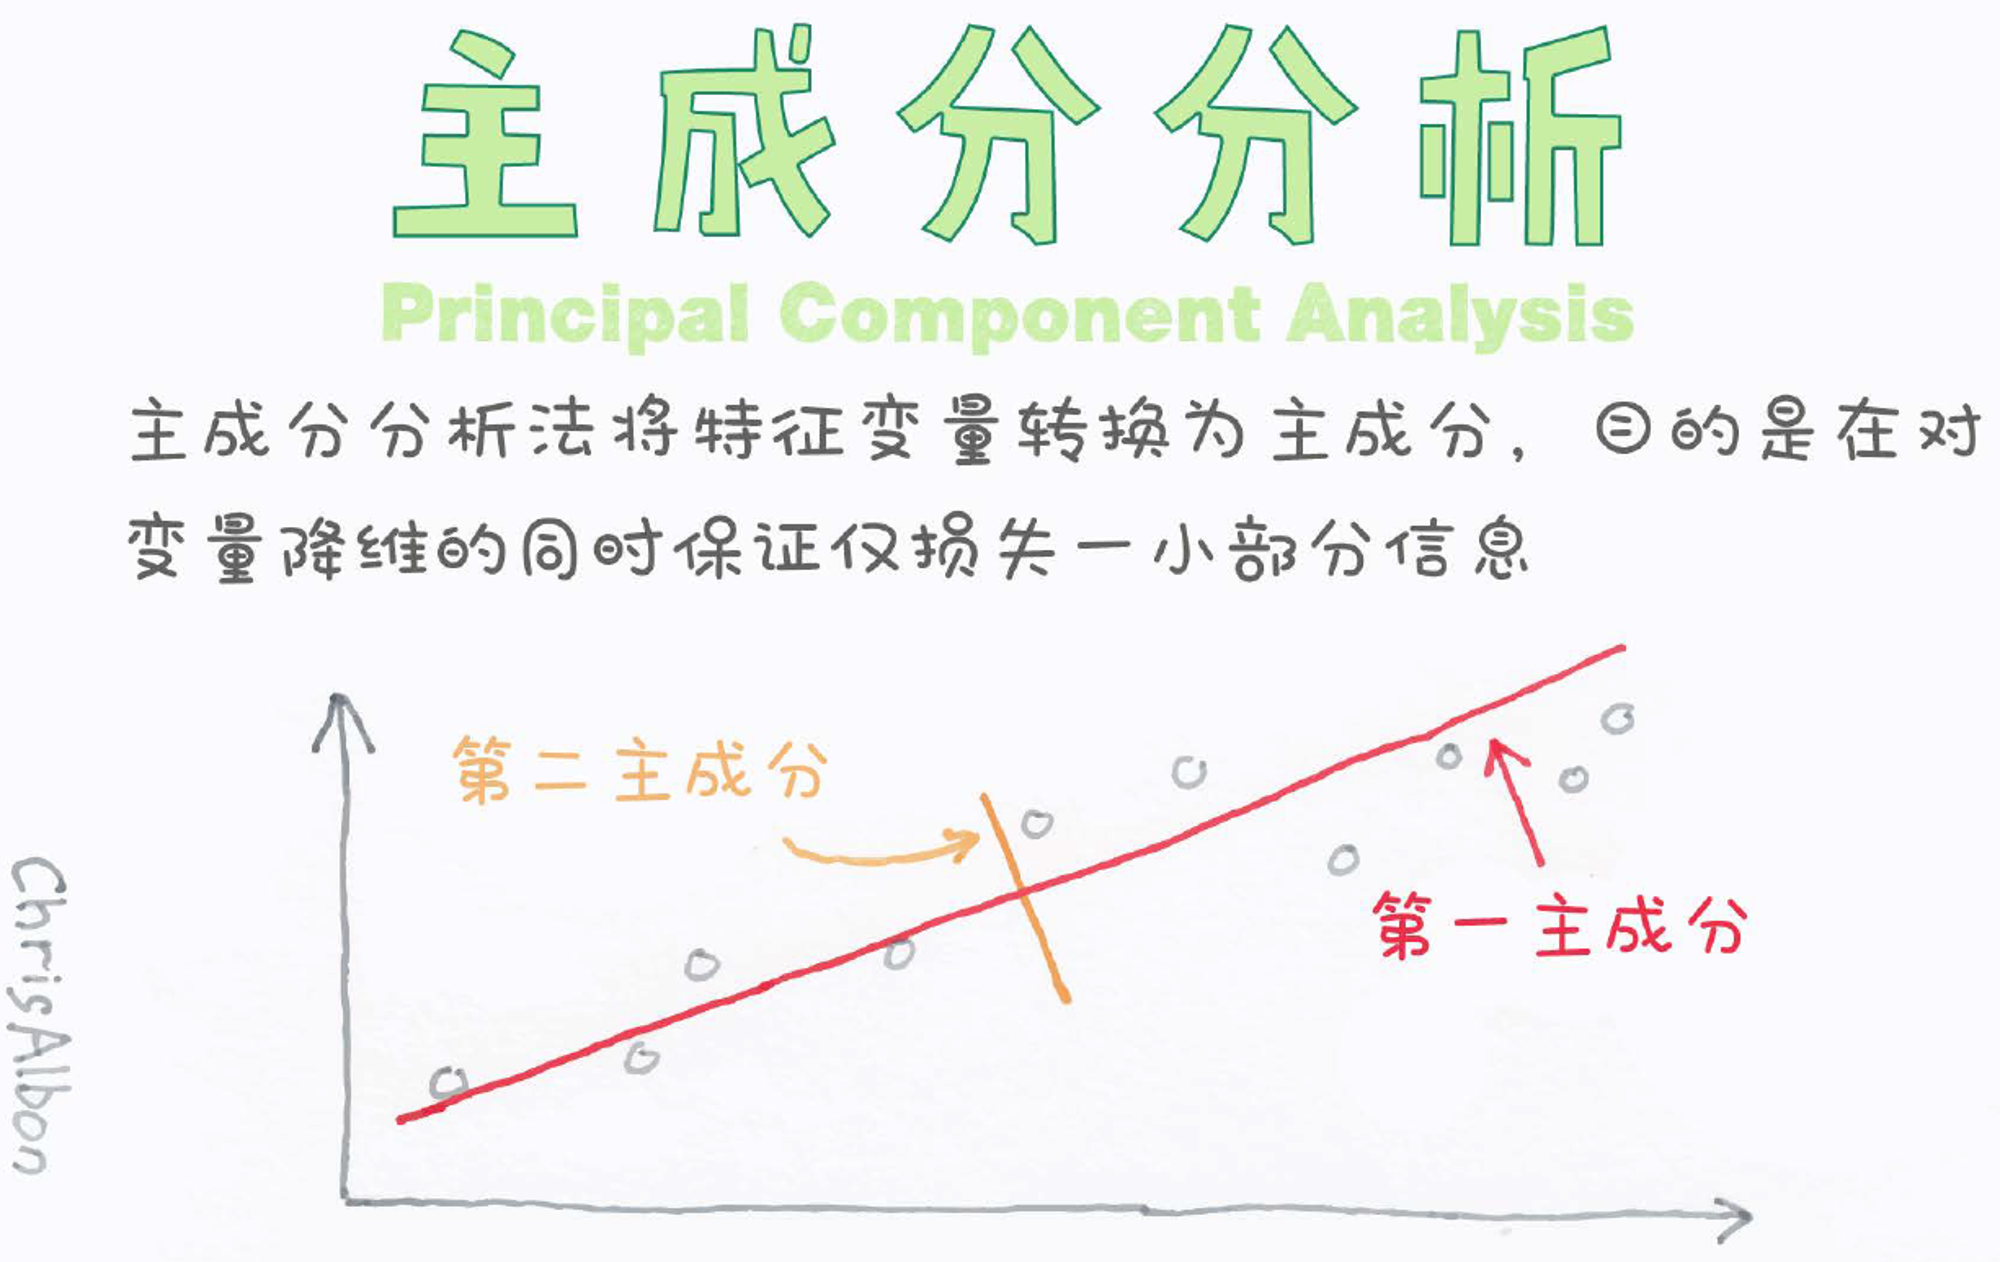 主成分分析
Principal Component Analysis
主成分分析法将特征变量转换为主成分，目的是在对
变量降维的同时保证仅损失一小部分信息
第二主成分
第一主成分
ChrisAlbon